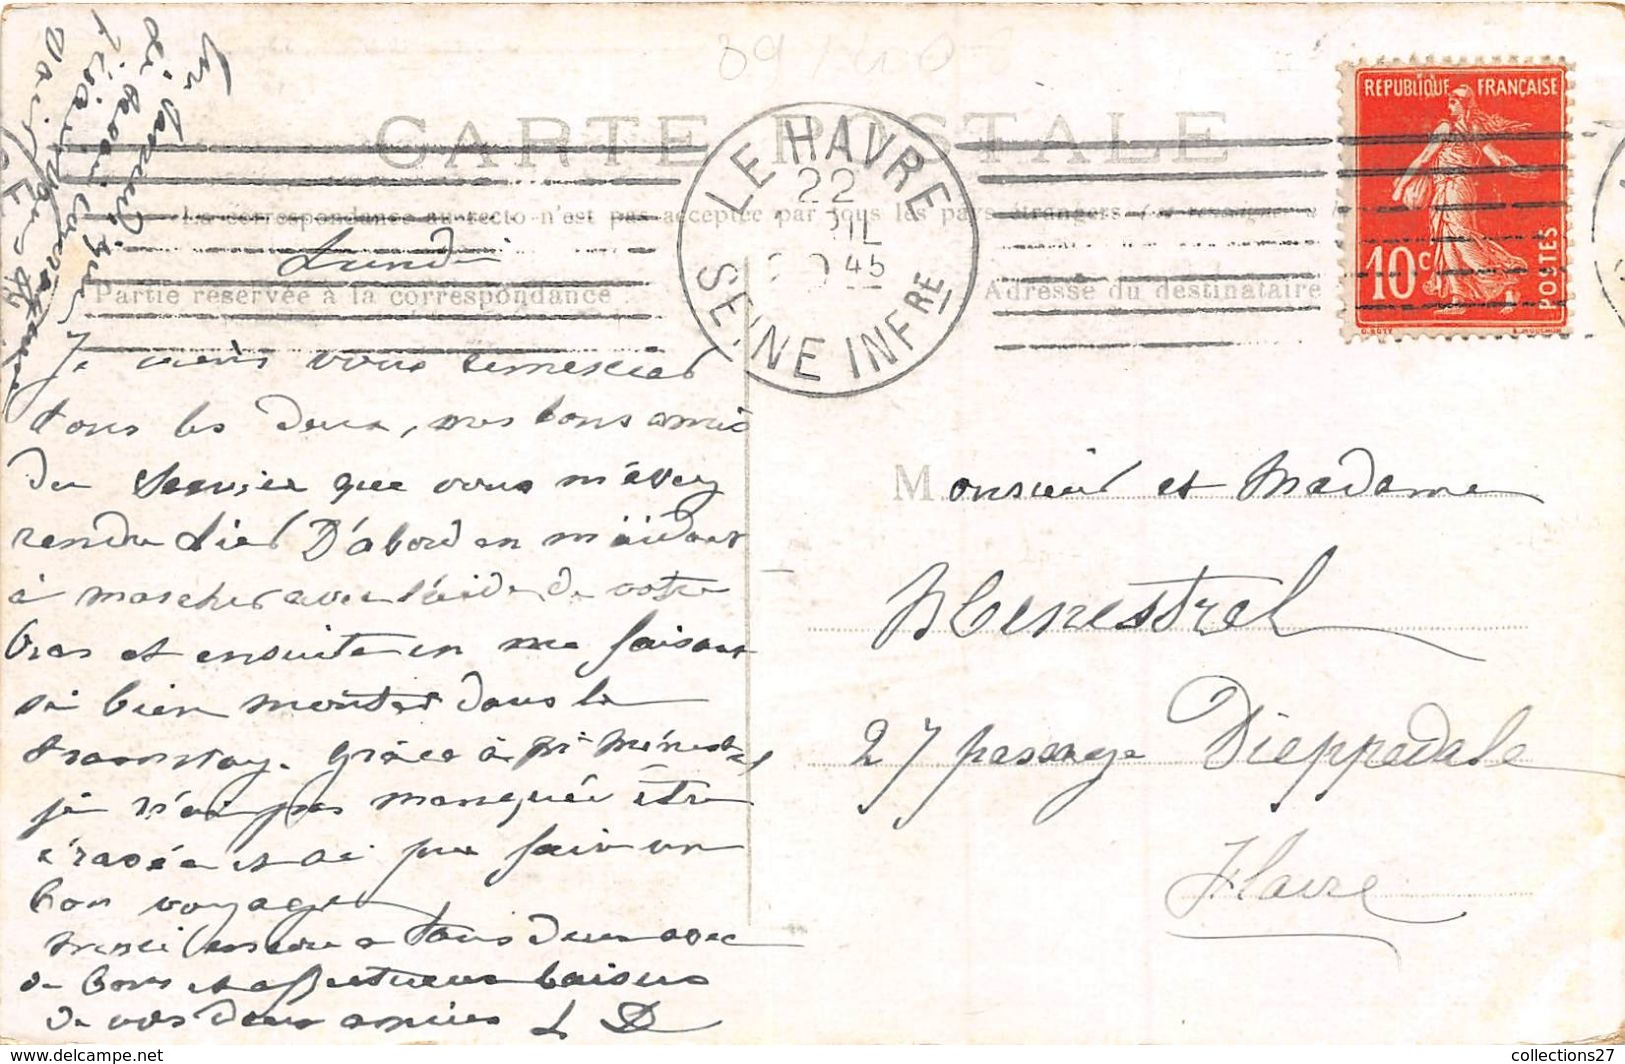 CARTE POSTALE
La correspondance au recto n'est pas acceptée par tous les pays étrangers
Partie réservée à la correspondance
Adresse du destinataire
LE HAVRE
22
45
SEINE INFRE
REPUBLIQUE FRANÇAISE
10c
POSTES
O. ROTY
E. MOUCHON
Lundi
Je viens vous remercier
tous les deux, mes bons amis
du service que vous m'avez
rendu hier D'abord en m'aidant
à marcher avec l'aide de votre
bras et ensuite en me faisant
si bien monter dans le
tramway. Grâce à Mr Ménestrel
je n'ai pas manquée être
écrasée et ai pu faire un
bon voyage
merci encore a tous deux avec
de bons et affectueux baisers
de vos deux amies L D
Monsieur et Madame
Menestrel
27 passage Dieppedale
Havre
collections27